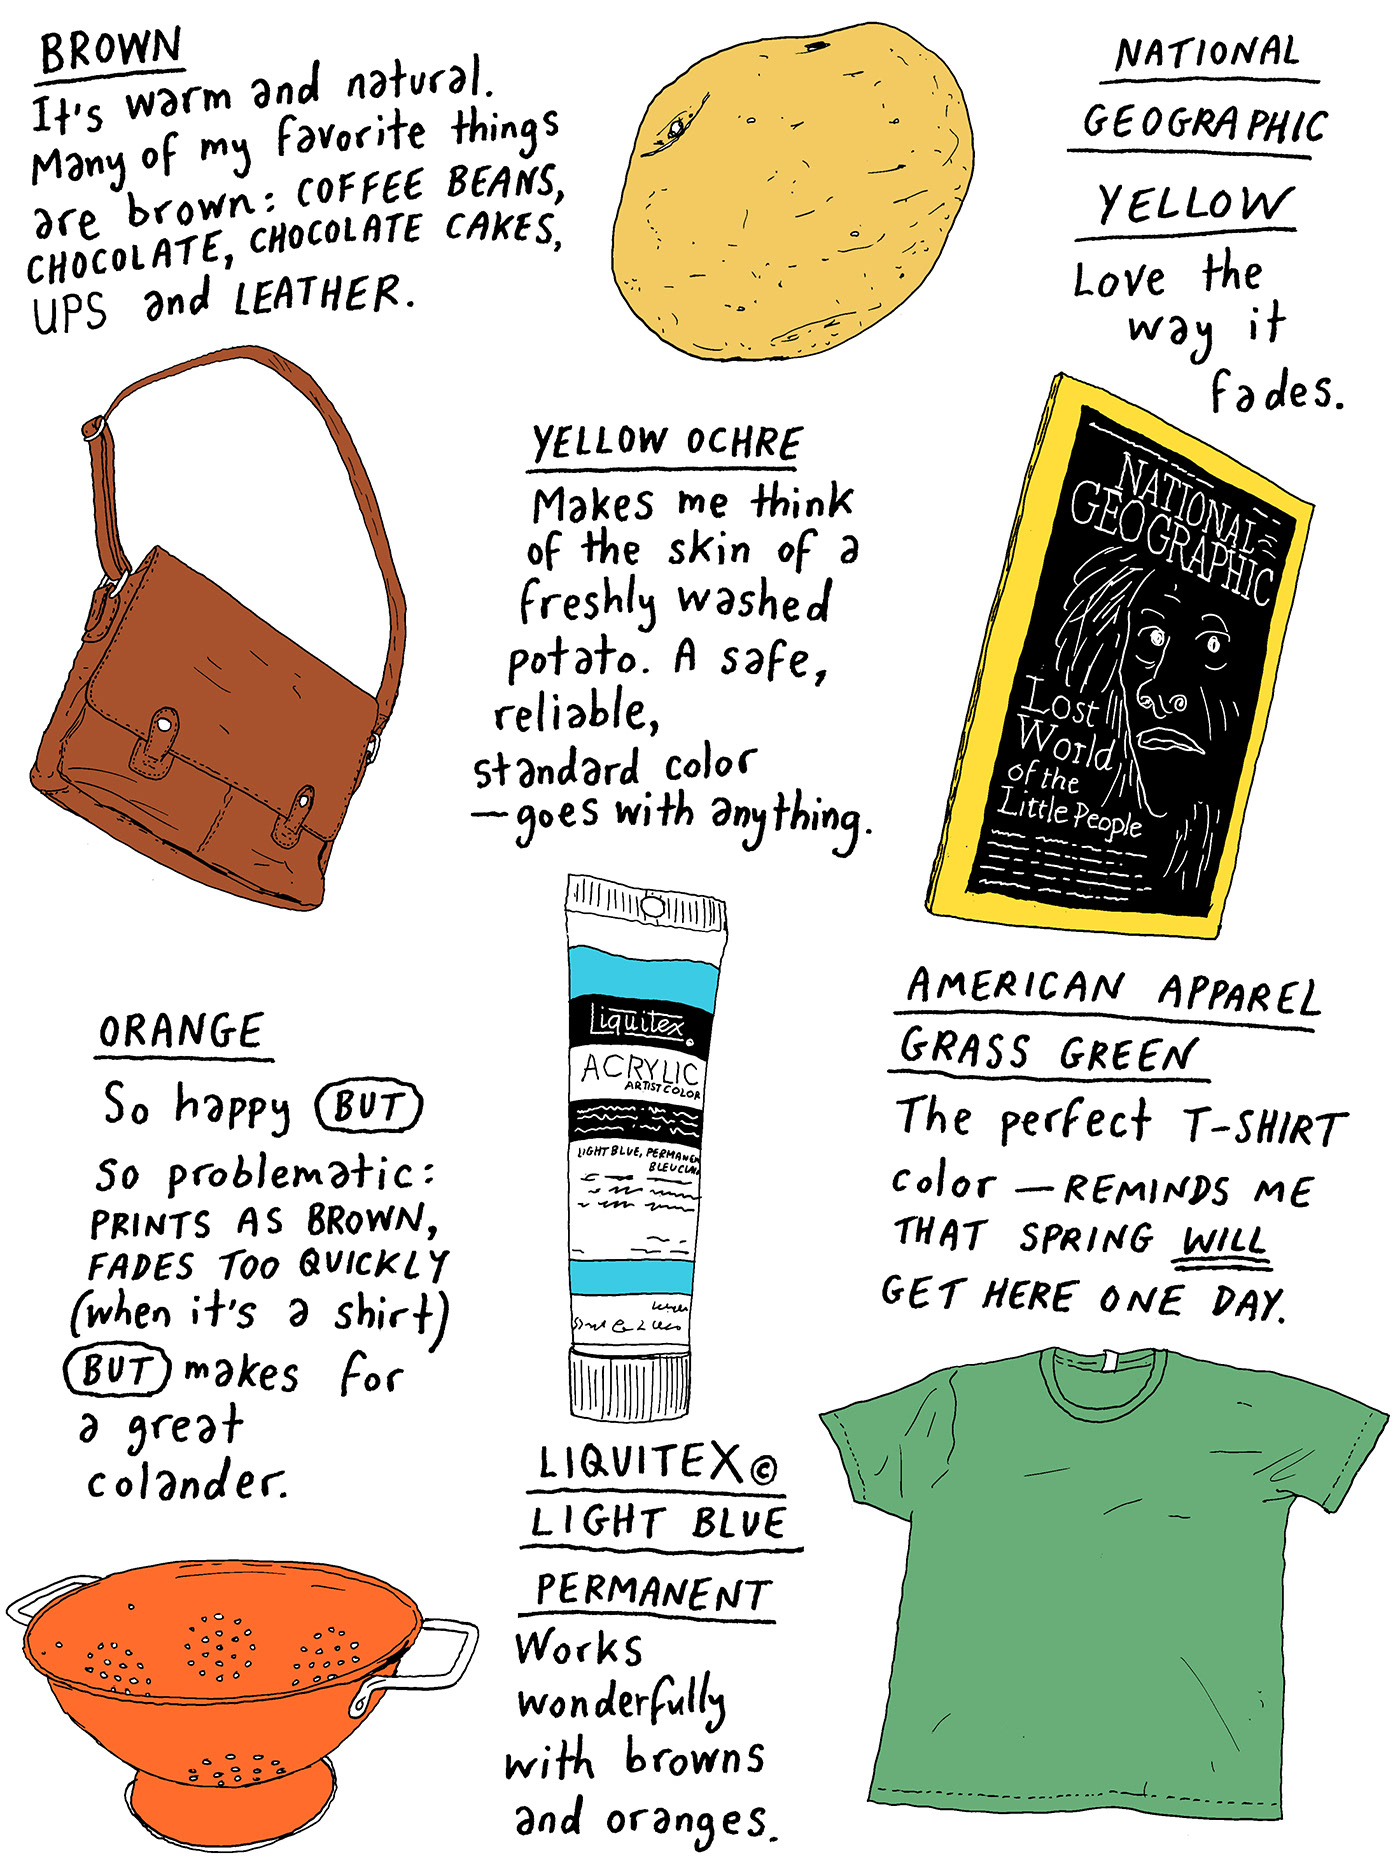 BROWN
It's warm and natural.
Many of my favorite things
are brown: COFFEE BEANS,
CHOCOLATE, CHOCOLATE CAKES,
UPS and LEATHER.
NATIONAL
GEOGRAPHIC
YELLOW
Love the
way it
fades.
YELLOW OCHRE
Makes me think
of the skin of a
freshly washed
potato. A safe,
reliable,
standard color
—goes with anything.
NATIONAL
GEOGRAPHIC
Lost
World
of the
Little People
ORANGE
So happy BUT
so problematic:
PRINTS AS BROWN,
FADES TOO QUICKLY
(when it's a shirt)
BUT makes for
a great
colander.
Liquitex
ACRYLIC
ARTIST COLOR
LIGHT BLUE, PERMANEN
BLEU CLAI
LIQUITEX©
LIGHT BLUE
PERMANENT
Works
wonderfully
with browns
and oranges.
AMERICAN APPAREL
GRASS GREEN
The perfect T-SHIRT
color —REMINDS ME
THAT SPRING WILL
GET HERE ONE DAY.